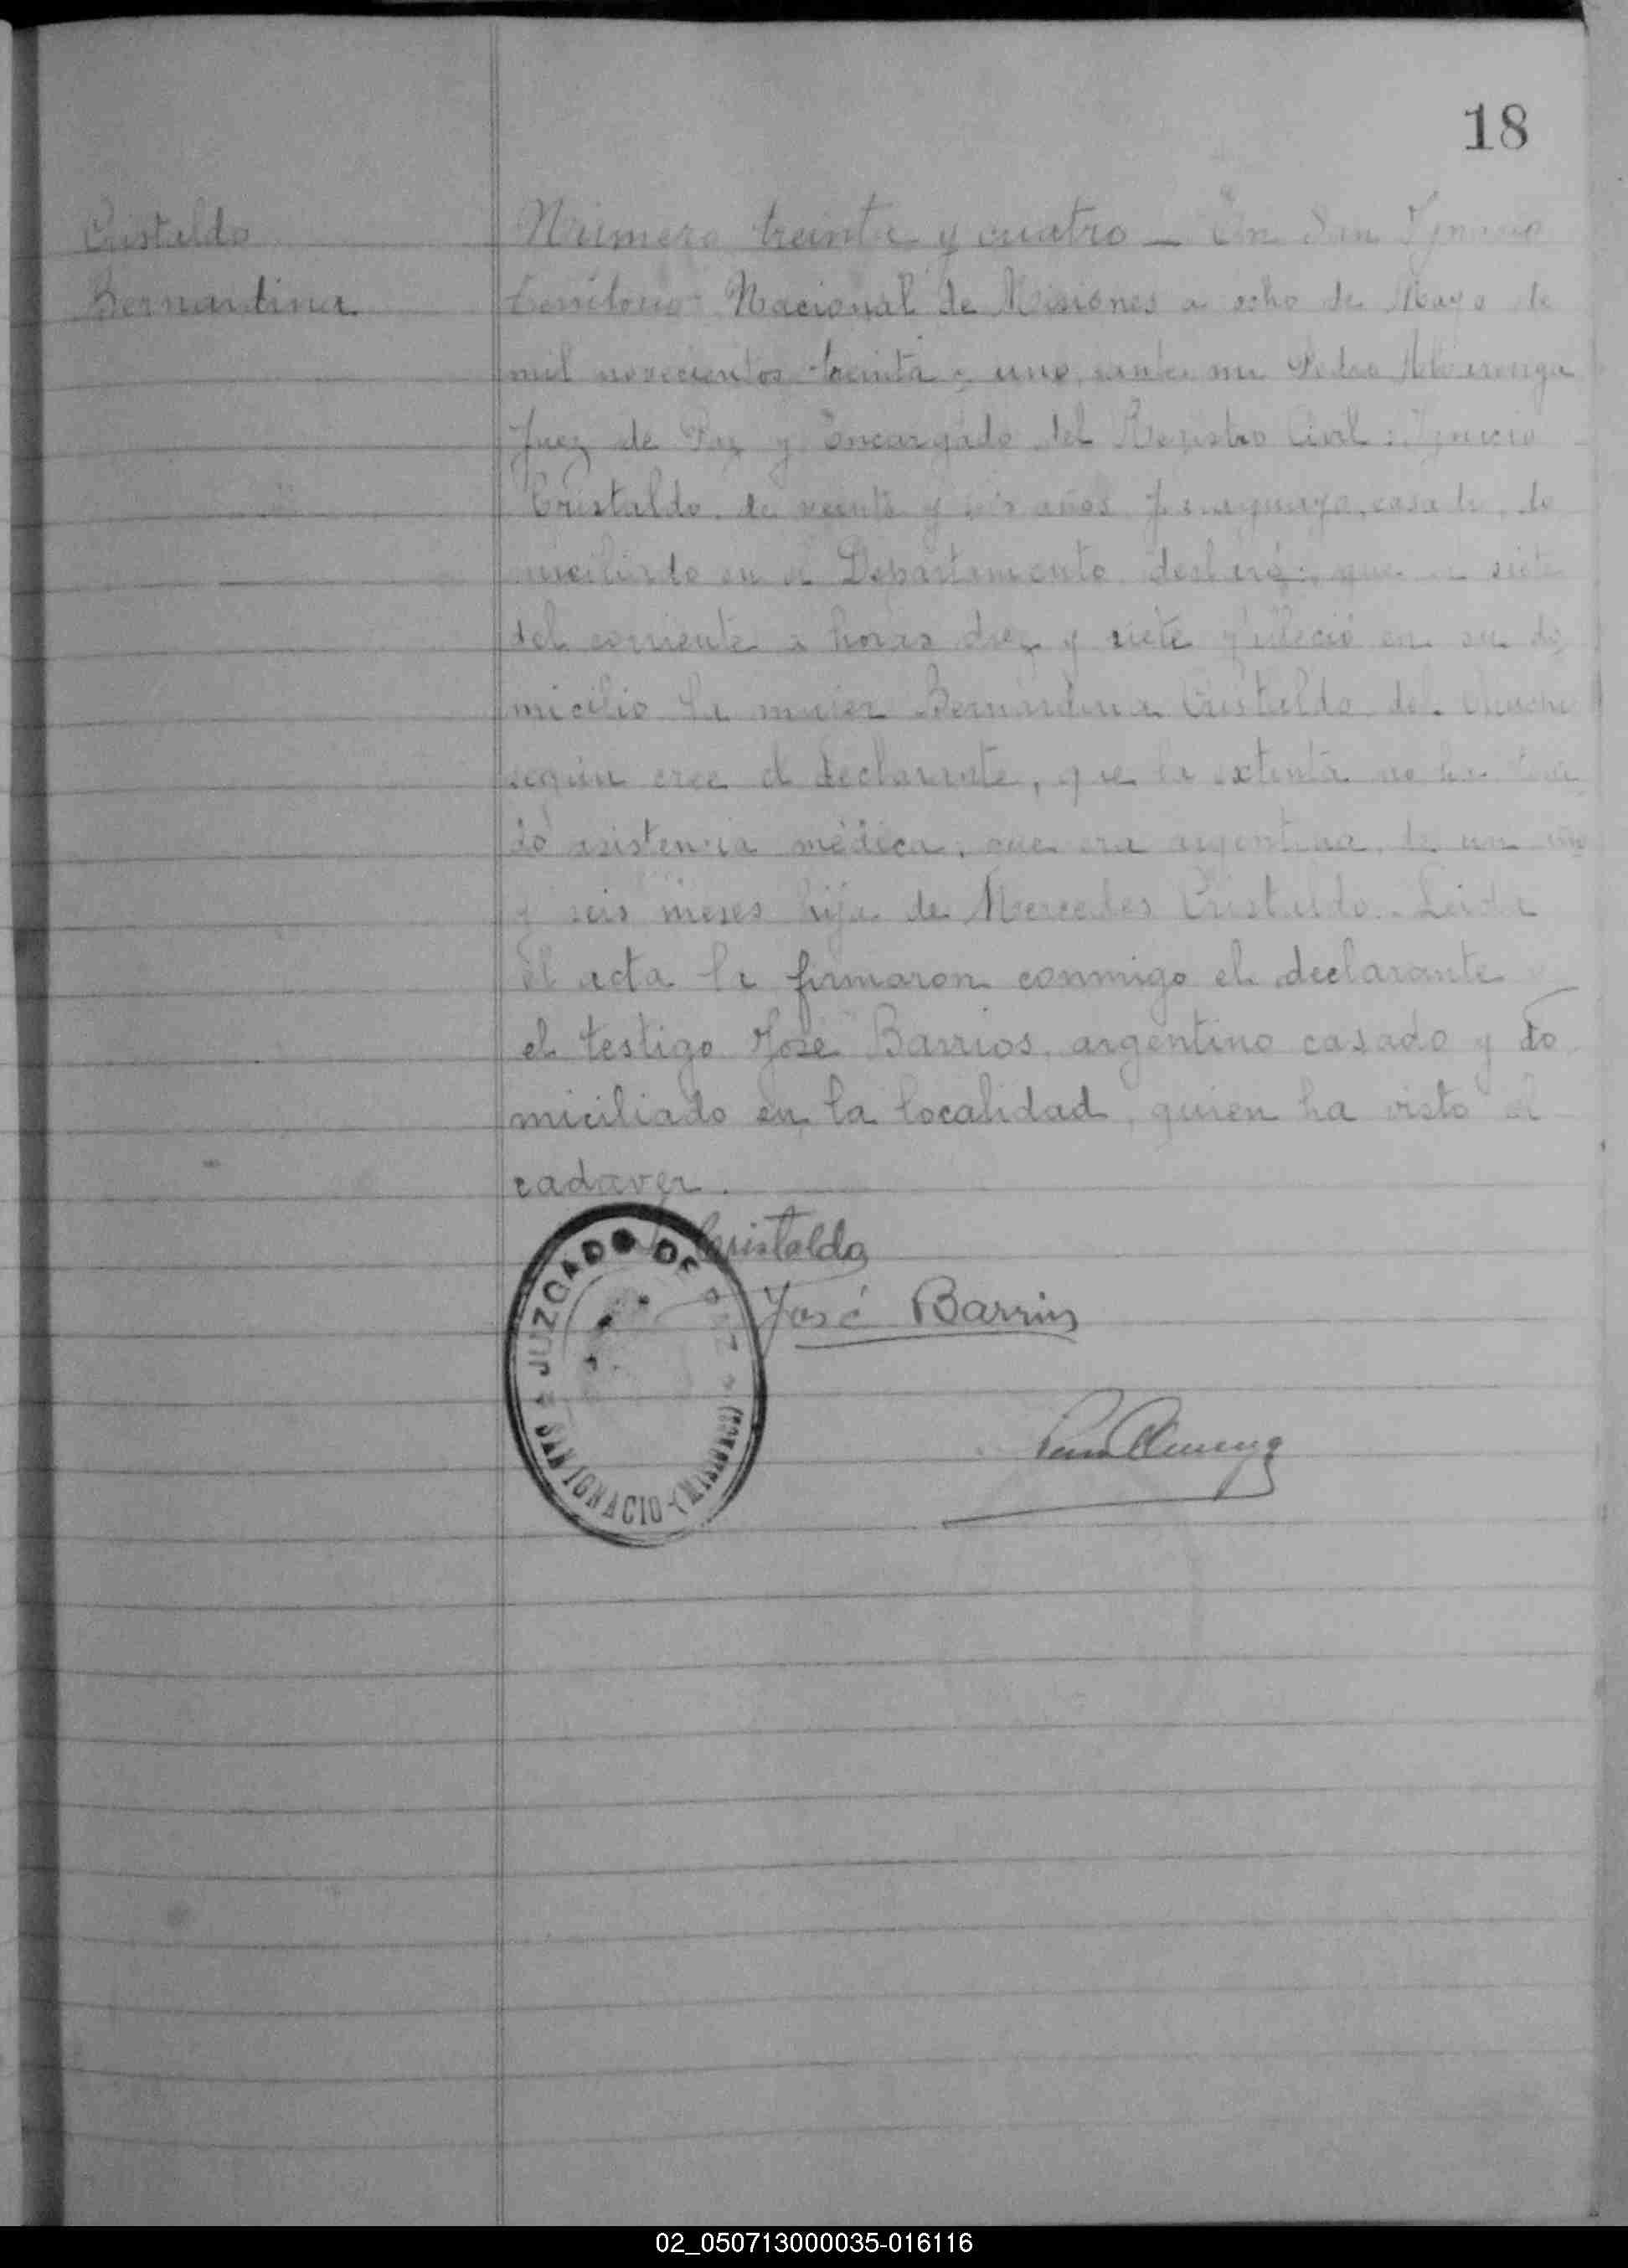 18
Cristaldo
Bernardina
Número treinta y cuatro – En San Ignacio
territorio Nacional de Misiones a ocho de Mayo de
mil novecientos treinta y uno, ante mi Pedro Alvarenga
Juez de Paz y Encargado del Registro Civil: Ignacio
Cristaldo, de veinte y años, paraguayo, casado, do
miciliado en el Departamento, declaró: que el siete
del corriente a horas diez y siete falleció en su do
micilio la mujer Bernardina Cristaldo del
según cree el declarante, que la extinta no ha teni
do asistencia médica, que era argentina, de un año
y seis meses hija de Mercedes Cristaldo. Leida
el acta la firmaron conmigo el declarante y
el testigo José Barrios, argentino casado y do
miciliado en la localidad, quien ha visto el
cadaver.
Cristaldo
José Barrios
JUZGADO DE PAZ
SAN IGNACIO-(MISIONES)
02_050713000035-016116